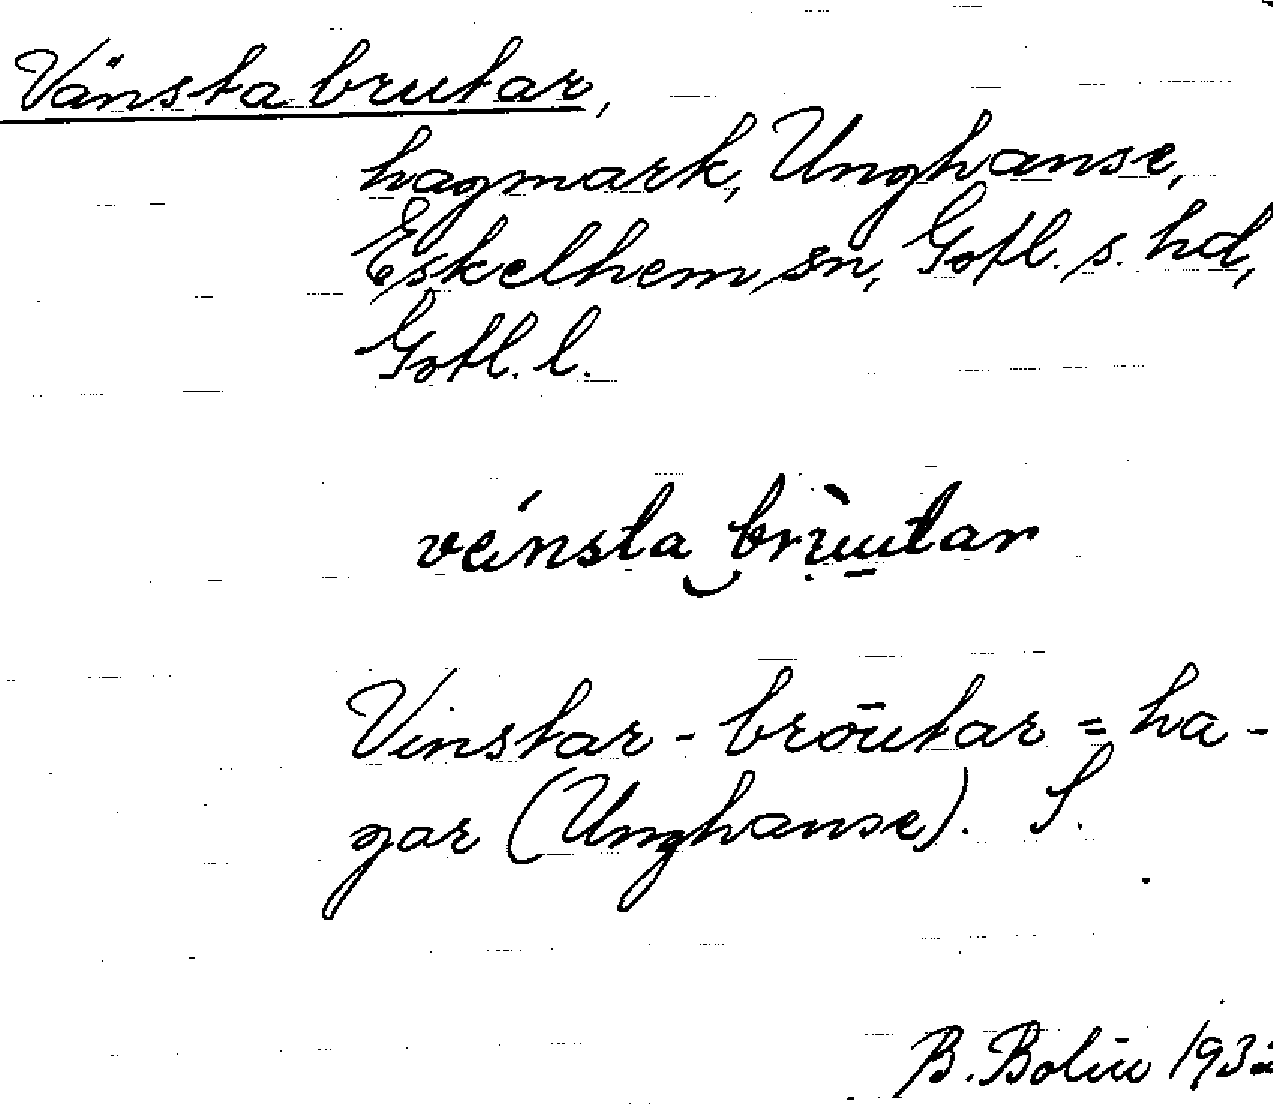 Vänsta brutar,
hagmark, Unghanse,
Eskelhem sn, Gotl. s. hd,
Gotl. l.
vänsta brùutar
Vinstar - brōutar = ha-
gar (Unghanse). S.
B. Bolin 1932